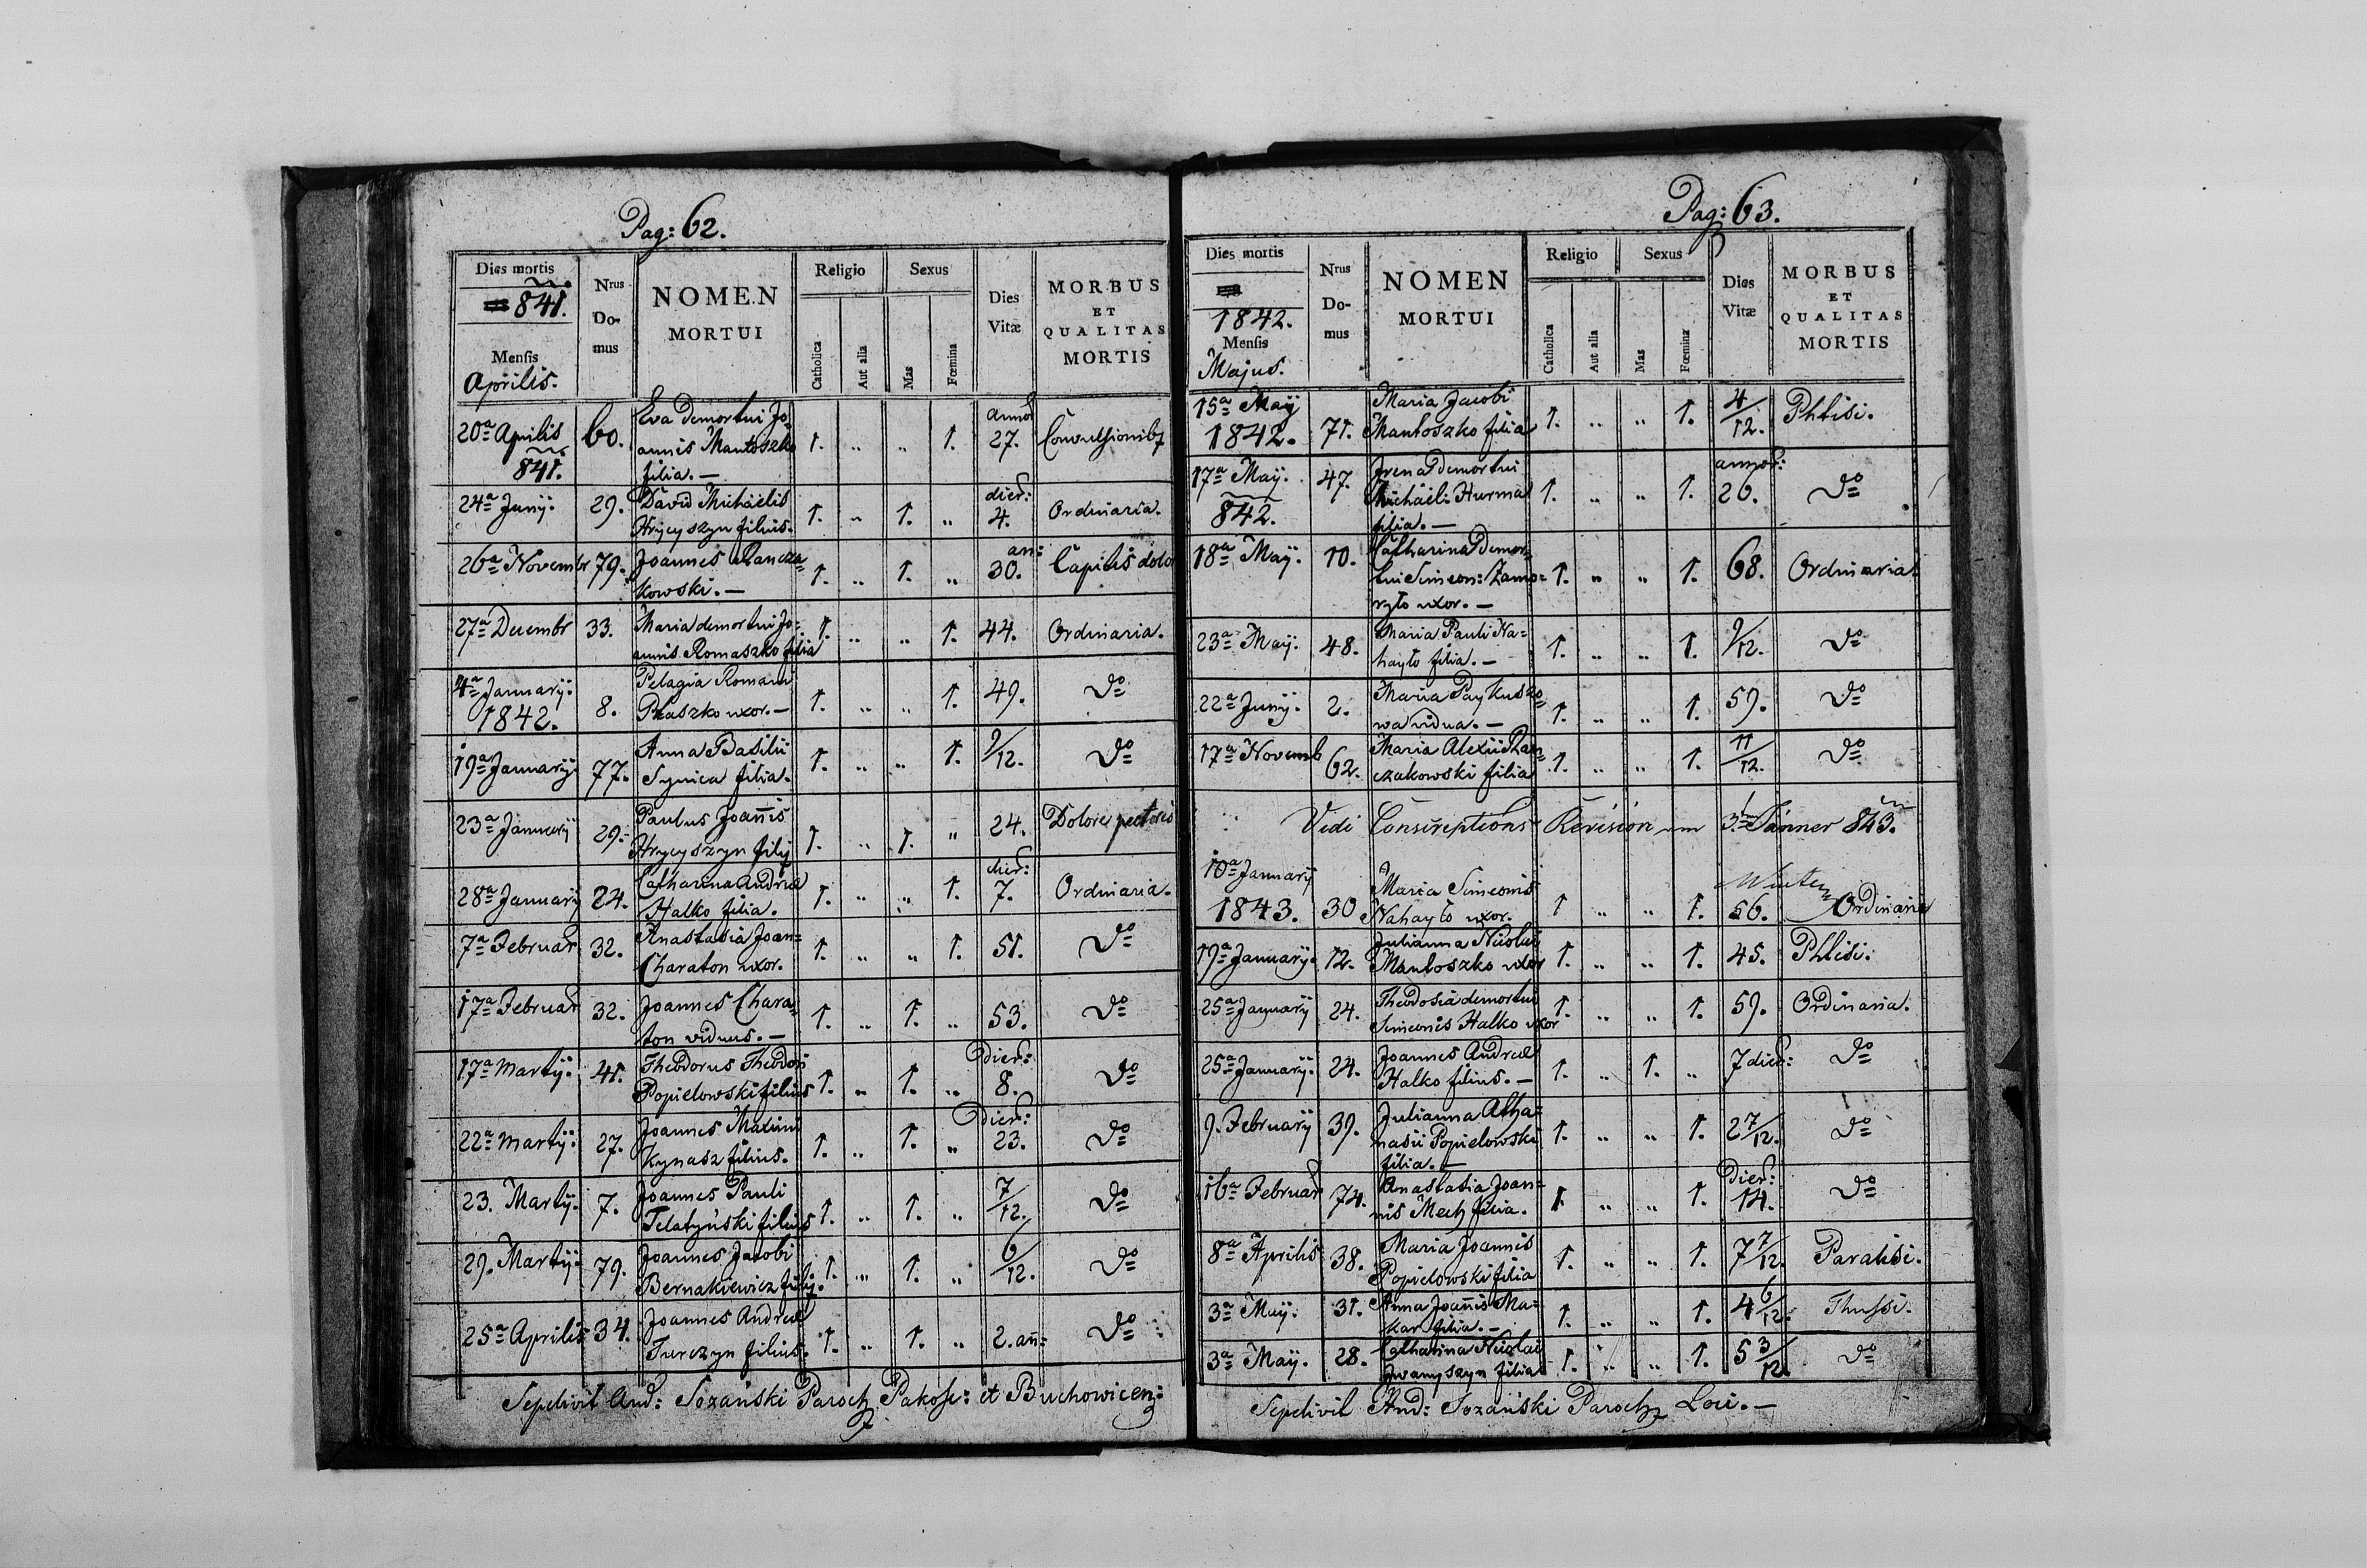 Pag: 62.
Dies mortis
841.
Mensis
Aprilis.
Nrus
Do-
mus
NOMEN
MORTUI
Religio
Catholica
Aut alia
Sexus
Mas
Fœmina
Dies
Vitæ
MORBUS
ET
QUALITAS
MORTIS
20a Aprilis 841. 60. Eva demortui Jo= 1. „ „ 1. annor 27. Convulsionibq
annis Mantoszko
filia. —
24a Junij. 29. David Michaelis 1. „ 1. „ dier: 4. Ordinaria.
Hrycyszyn filius.
26a Novembr 79. Joannes Rancza= 1. „ 1. „ an: 30. Capitis dolor
kowski. —
27a Decembr 33. Maria demortui Jo= 1. „ „ 1. 44. Ordinaria.
annis Romaszko filia
4a Januarij. 1842. 8. Pelagia Romani 1. „ „ 1. 49. do
Ptaszko uxor. —
19a Januarij 77. Anna Basilii 1. „ „ 1. 9/12. do
Synica filia.
23a Januarij 29. Paulus Joannis 1. „ 1. „ 24. Dolore pectoris
Hrycyszyn filij
28a Januarij 24. Catharina Andreæ 1. „ „ 1. dier: 7. Ordinaria.
Halko filia.
7a Februar 32. Anastasia Joan= 1. „ „ 1. 51. do
Charaton uxor.
17a Februar 32. Joannes Chara= 1. „ 1. „ 53. do
ton viduus. —
17a Martij. 41. Theodorus Theodori 1. „ 1. „ Dier: 8. do
Popielowski filius
22a Martij. 27. Joannes Maximi 1. „ 1. „ Dier: 23. do
Kynasz filius.
23. Martij. 7. Joannes Pauli 1. „ 1. „ 7/12. do
Telatyński filius
29. Martij. 79. Joannes Jacobi 1. „ 1. „ 6/12. do
Bernakiewicz filij.
25a Aprilis 34. Joannes Andreæ 1. „ 1. „ 2. an= do
Turczyn filius.
Sepelivit And: Sozański Paroch Pakosc: et Buchowicen:
Pag: 63.
Dies mortis
1842.
Mensis
Majus.
Nrus
Do-
mus
NOMEN
MORTUI
Religio
Catholica
Aut alia
Sexus
Mas
Fœmina
Dies
Vitæ
MORBUS
ET
QUALITAS
MORTIS
15a Maij 1842. 71. Maria Jacobi 1. „ „ 1. 4/12. Phtisi.
Mantoszko filia
17a Maij. 842. 47. Irena demortui 1. „ „ 1. annor: 26. do
Michaeli Hurma
filia. —
18a Maij. 10. Catharina demor= 1. „ „ 1. 68. Ordinaria.
tui Simeon: Zamo=
ryło uxor. —
23a Maij. 48. Maria Pauli Na= 1. „ „ 1. 9/12. do
hayło filia. —
22a Junij. 2. Maria Paykuszo= 1. „ „ 1. 59. do
wa vidua. —
17a Novemb 62. Maria Alexii Ran= 1. „ „ 1. 11/12. do
czakowski filia
Vidi Conscriptions Revision am 31ten Jänner 843.
10a Januarij 1843. 30 Maria Simeonis 1 „ „ 1. 56. Ordinaria
Nahayło uxor.
19a Januarij. 12. Julianna Nicolai 1. „ „ 1. 45. Phtisi.
Mantoszko uxor
25a Januarij 24. Theodosia demortui 1. „ „ 1. 59. Ordinaria.
Simeonis Halko uxor
25a Januarij. 24. Joannes Andreæ 1. „ 1. „ 7 dier: do
Halko filius. —
9. Februarij 39. Julianna Atha= 1. „ „ 1. 2 7/12. do
nasii Popielowski
filia. —
16a Februar 74. Anastasia Joan= 1. „ „ 1. Dier: 14. do
nis Mech filia.
8a Aprilis 38. Maria Joannis 1. „ „ 1. 7 7/12. Paralisi.
Popielowski filia
3a Maij. 31. Anna Joannis Ma= 1. „ „ 1. 4 6/12. Thussi.
kar filia. —
3a Maij. 28. Catharina Nicolai 1. „ „ 1. 5 3/12. do
Jwanyszyn filia
Sepelivit And: Sozański Paroch Loci. —